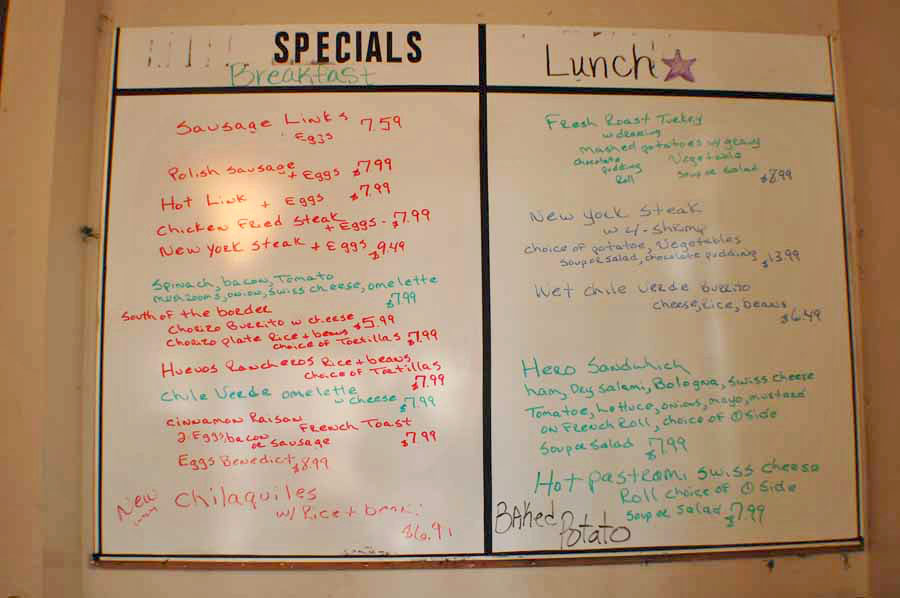 SPECIALS
Breakfast
Sausage Links
Eggs 7.59
Polish Sausage
+ Eggs $7.99
Hot Link + Eggs $7.99
Chicken Fried Steak
+ Eggs - $7.99
New York Steak + Eggs $9.49
Spinach, bacon, Tomato
mushrooms, onion, swiss cheese, omelette
$7.99
South of the border
Chorizo Burrito w cheese $5.99
Chorizo plate Rice + beans
choice of Tortillas $7.99
Huevos Rancheros Rice + beans
choice of Tortillas
$7.99
Chile Verde omelette
w cheese $7.99
cinnamon Raisan
French Toast
2 Eggs, bacon
or Sausage $7.99
Eggs Benedict $8.99
New
Chilaquiles
w/ Rice + beans
$6.91
Lunch
Fresh Roast Turkey
w dressing
mashed potatoes w/ gravy
chocolate pudding
Vegetable
Roll
Soup or Salad
$8.99
New York Steak
w 4 - Shrimp
choice of potatoe, Vegetables
Soup or Salad, chocolate pudding
$13.99
Wet Chile Verde burrito
cheese, Rice, beans
$6.49
Hero Sandwhich
ham, Dry Salami, Bologna, Swiss cheese
Tomatoe, Lettuce, onions, mayo, mustard
on French Roll, choice of 1 Side
Soup or Salad $7.99
Hot pastrami Swiss cheese
Roll choice of 1 Side
Soup or Salad $7.99
BAKed
Potato